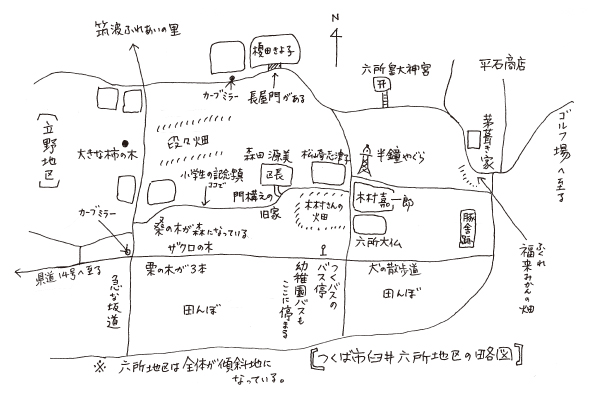 筑波ふれあいの里
N
榎田きよ子
カーブミラー
長屋門がある
六所皇大神宮
平石商店
茅葺き家
ゴルフ場へ至る
【立野地区】
大きな柿の木
段々畑
小学生の記念樹
ココまで
森田源美
区長
門構えの
旧家
松崎志津子
半鐘やぐら
木村さんの
畑
木村嘉一郎
六所大仏
豚舎跡
福来みかんの畑
ふくれ
カーブミラー
桑の木が森になっている
ザクロの木
県道14号へ至る
急な坂道
栗の木が3本
田んぼ
幼稚園バスも
ここに停まる
つくバスの
バス停
犬の散歩道
田んぼ
【つくば市臼井六所地区の略図】
※ 六所地区は全体が傾斜地に
なっている。